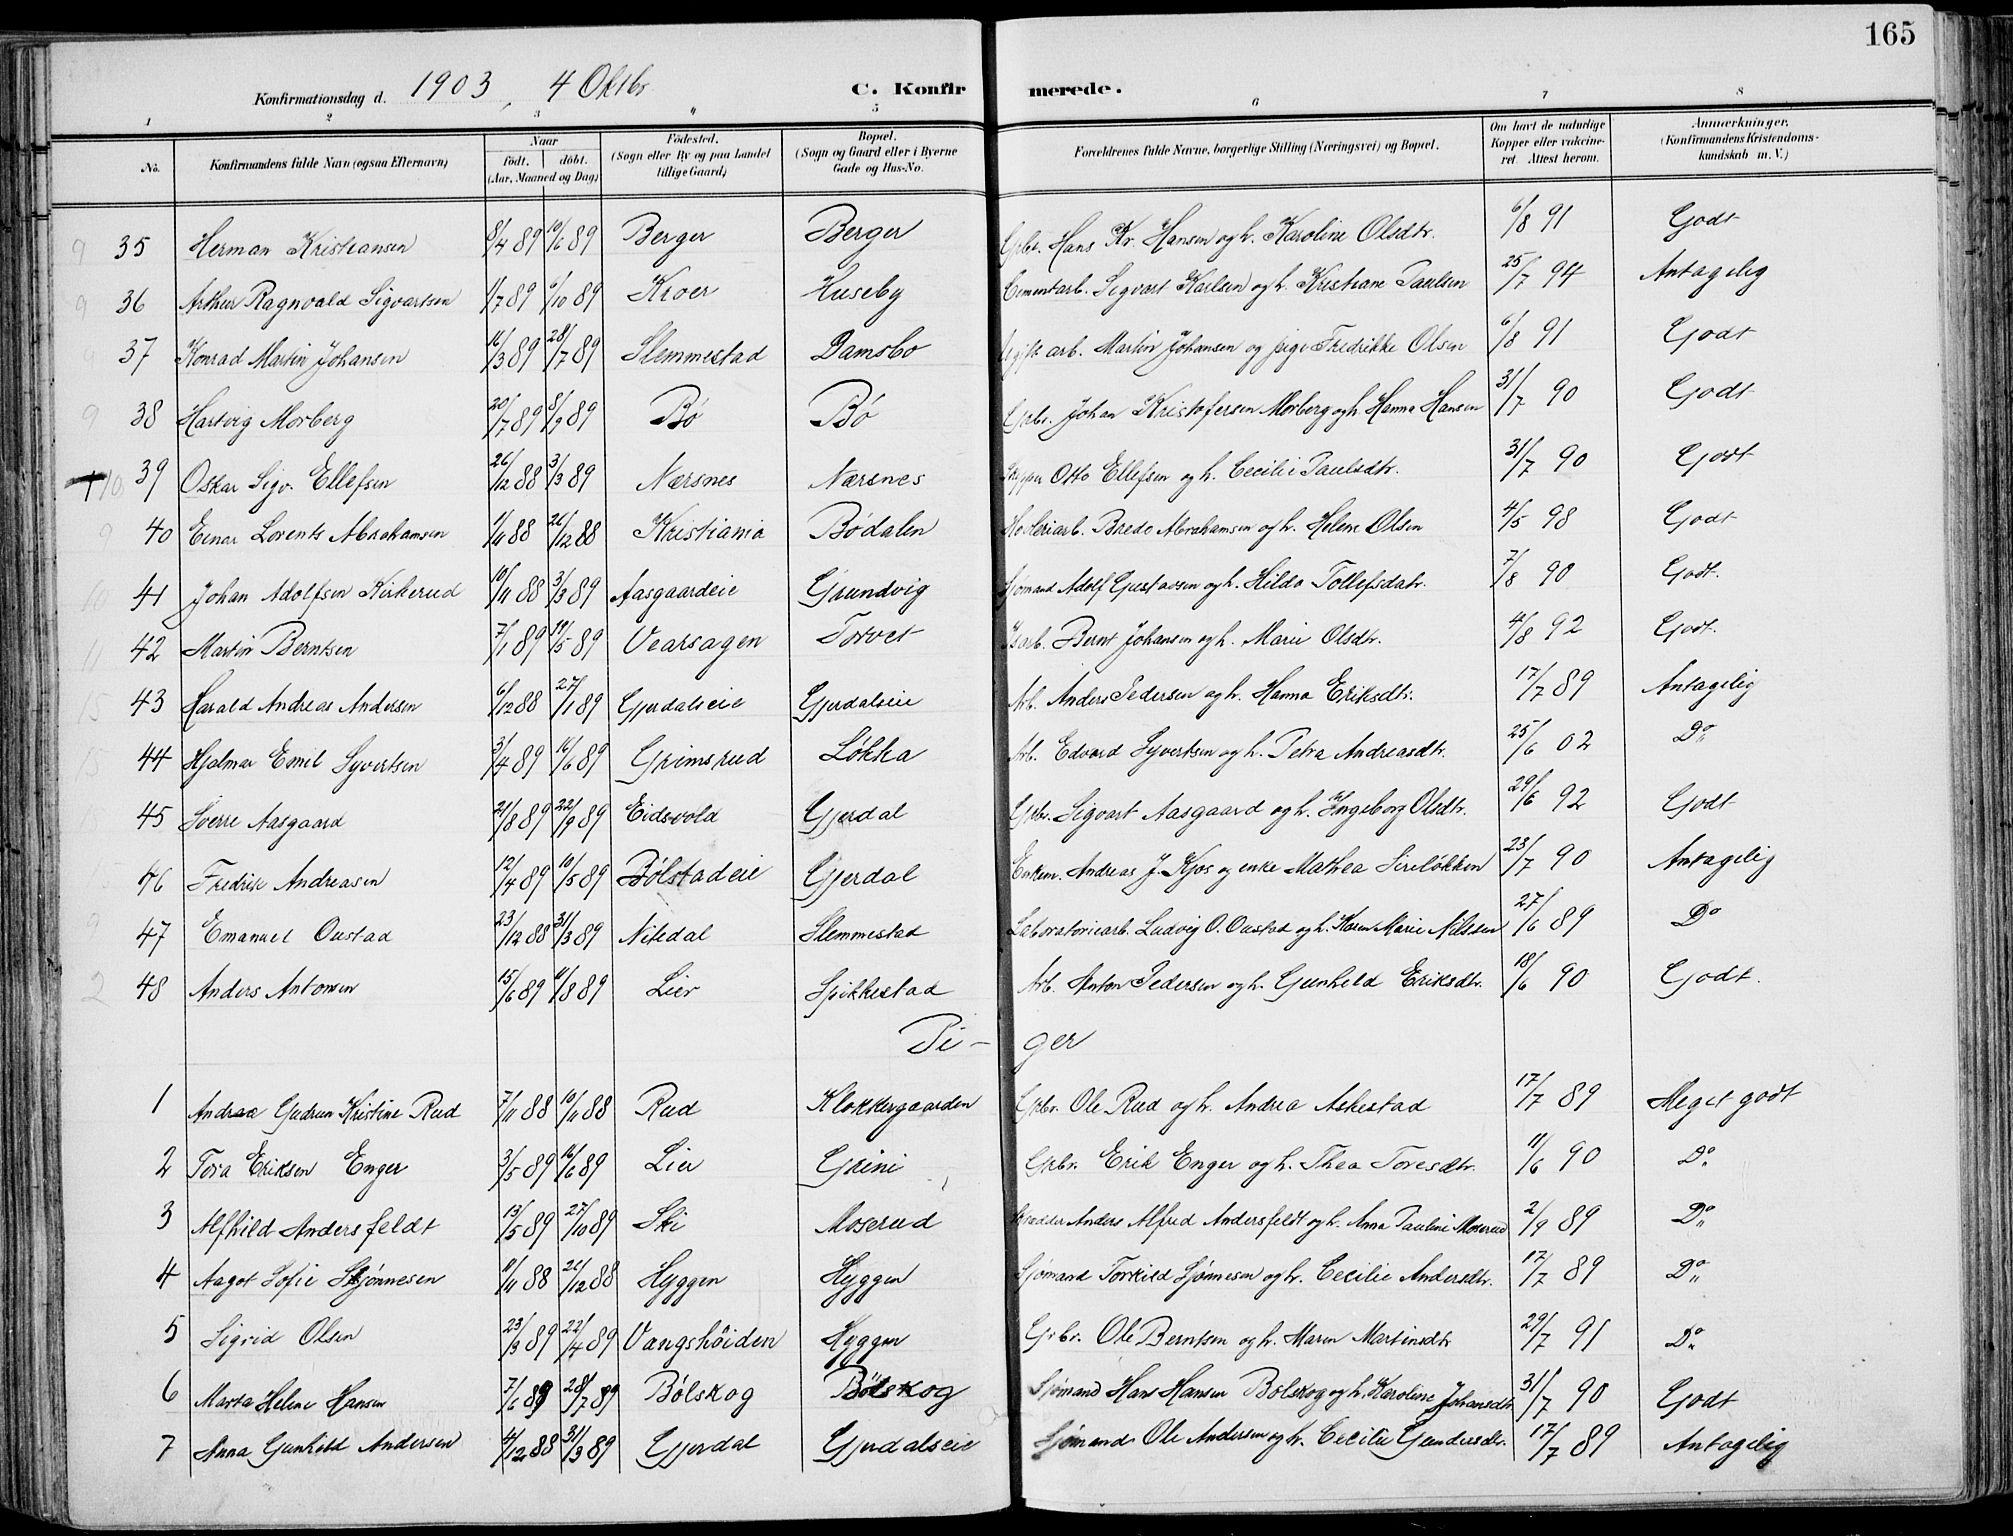 165
Konfirmationsdag d. 1903, 4 Oktbr C. Konfirmerede.
1 2 3 4 5 6 7 8
No. Konfirmandens fulde Navn (ogsaa Efternavn) Naar født. døbt. (Aar, Maaned og Dag) Fødested. (Sogn eller By og paa Landet tillige Gaard) Bopæl. (Sogn og Gaard eller i Byerne Gade og Hus-No. Forældrenes fulde Navne, borgerlige Stilling (Næringsvei) og Bopæl. Om havt de naturlige Kopper eller vaccineret. Attest herom. Anmærkninger. (Konfirmandens Kristendomskundskab m. V.)
9 35 Herman Kristiansen 8/4 89 10/6 89 Berger Berger Gbr. Hans Kr. Hansen og h. Karoline Olsdtr. 6/8 91 Godt
9 36 Arthur Ragnvald Sigvartsen 1/7 89 6/10 89 Kroer Huseby Cementarb. Sigvart Karlsen og h. Kristiane Paulsen 25/7 94 Antagelig
9 37 Konrad Martin Johansen 16/3 89 28/7 89 Slemmestad Damsbo Ugift arb. Martin Johansen og pige Fredrikke Olsen 6/8 91 Godt
9 38 Hartvig Morberg 20/7 89 8/9 89 Bø Bø Gbr. Johan Kristofersen Morberg og h. Hanna Hansen 31/7 90 Godt
10 39 Oskar Sigv. Ellefsen 26/12 88 3/3 89 Nærsnes Nærsnes Skipper Otto Ellefsen og h. Cecilie Paulsdtr. 31/7 90 Godt
9 40 Einar Lorents Abrahamsen 1/11 88 26/12 88 Kristiania Bødalen Høvleriarb. Brede Abrahamsen og h. Helene Olsen 4/5 98 Godt
10 41 Johan Adolfsen Kirkerud 10/11 88 3/3 89 Aasgaardeie Grundvig Sjømand Adolf Gustavsen og h. Hilda Tollefsdatr. 7/8 90 Godt.
11 42 Martin Berntsen 7/1 89 19/5 89 Vearsagen Torvet Isarb. Bernt Johansen og h. Marie Olsdtr. 4/8 92 Godt.
15 43 Harald Andreas Andersen 6/12 88 27/1 89 Gjerdalseie Gjerdalseie Arb. Anders Pedersen og h. Hanna Eriksdtr. 17/7 89 Antagelig
15 44 Hjalmar Emil Syvertsen 3/4 89 16/6 89 Grimsrud Løkka Arb. Edvard Syvertsen og h. Petra Andreasdtr. 25/6 02 Do
45 Sverre Aasgaard 21/8 89 22/9 89 Eidsvold Gjerdal Gbr. Sigvart Aasgaard og h. Ingeborg Olsdtr. 29/6 92 Godt
46 Fredrik Andreasen 12/4 89 10/5 89 Bølstadeie Gjerdal Enkem. Andreas J. Kjos og enke Mathea Sireløkken 23/7 90 Antagelig
9 47 Emanuel Oustad 23/12 88 31/3 89 Nitedal Slemmestad Laboratoriearb. Ludvig O. Oustad og h. Karen Marie Nilssen 27/6 89 Do
2 48 Anders Antonsen 15/6 89 11/8 89 Lier Spikkestad Arb. Anton Pedersen og h. Gunhild Eriksdtr. 18/6 90 Godt.
Pi-ger
1 Andrea Gudrun Kristine Rud 7/11 88 10/11 88 Rud Klokkergaarden Gbr. Ole Rud og h. Andrea Askestad 17/7 89 Meget godt
2 Tora Eriksen Enger 3/5 89 16/6 89 Lier Grini Gbr. Erik Enger og h. Thea Toresdtr. 11/6 90 Do
3 Alfhild Andersfeldt 13/5 89 27/10 89 Ski Moserud Skrædder Anders Alfred Andersfeldt og h. Anna Pauline Moserud 2/9 89 Do
4 Aagot Sofie Skjønnesen 11/11 88 26/12 88 Hyggen Hyggen Sjømand Torkild Sjønnesen og h. Cecilie Andersdtr. 17/7 89 Do
5 Sigrid Olsen 23/3 89 22/4 89 Vangshøiden Hyggen Gbr. Ole Berntsen og h. Maren Martinsdtr 29/7 91 Do
6 Marta Helene Hansen 7/6 89 28/7 89 Bølskog Bølskog Sjømand Hans Hansen Bølskog og h. Karoline Johansdtr 31/7 90 Godt
7 Anna Gunhild Andersen 4/12 88 31/3 89 Gjerdal Gjerdalseie Sjømand Ole Andersen og h. Cecilie Gundersdtr. 17/7 89 Antagelig